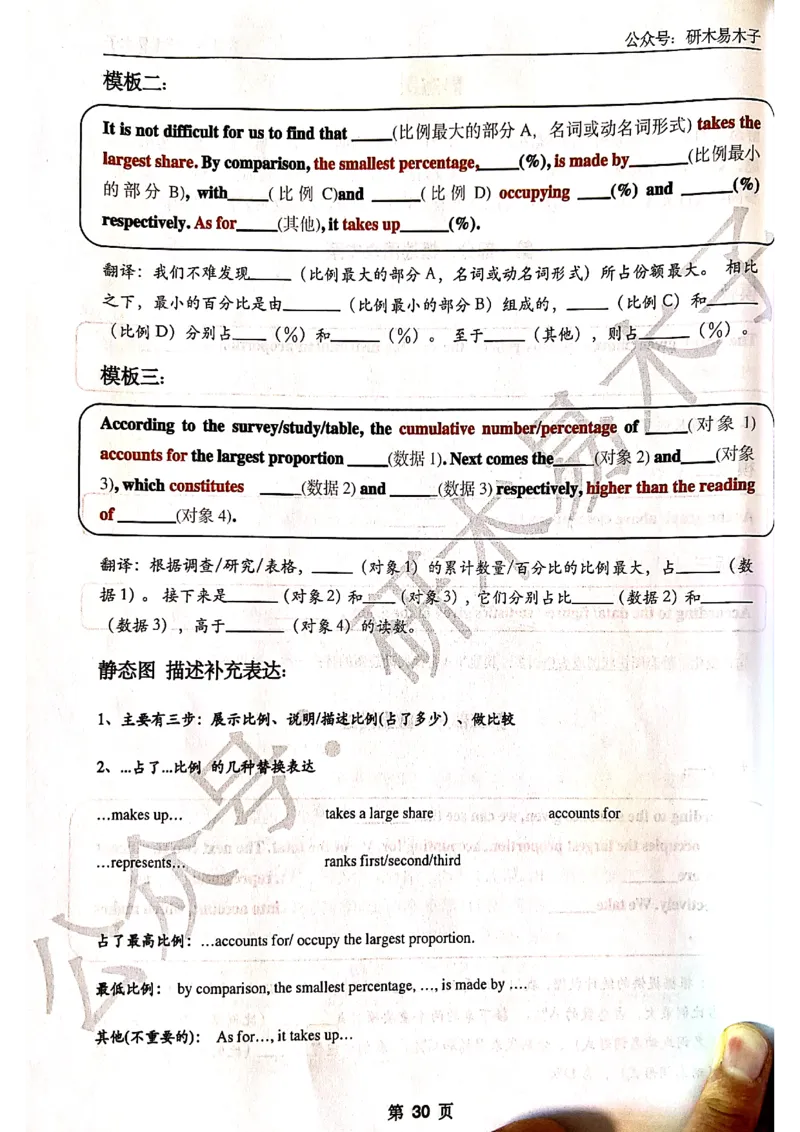 公众号：研木易木子
模板二:
It is not difficult for us to find that _____(比例最大的部分 A，名词或动名词形式) takes the
largest share. By comparison, the smallest percentage,_____(%), is made by_______(比例最小
的部分 B), with_____(比例 C)and ______(比例 D) occupying ____(%) and ______(%)
respectively. As for_____(其他), it takes up______(%).
翻译：我们不难发现_____（比例最大的部分 A，名词或动名词形式）所占份额最大。相比
之下，最小的百分比是由______（比例最小的部分 B）组成的，_____（比例 C）和______
（比例 D）分别占____（%）和______（%）。至于_____（其他），则占______（%）。
模板三:
According to the survey/study/table, the cumulative number/percentage of _____(对象 1)
accounts for the largest proportion _____(数据 1). Next comes the_____(对象 2) and____(对象
3), which constitutes _____(数据 2) and ______(数据 3) respectively, higher than the reading
of _______(对象 4).
翻译：根据调查/研究/表格，_____（对象 1）的累计数量/百分比的比例最大，占_____（数
据 1）。接下来是______（对象 2）和____（对象 3），它们分别占比_____（数据 2）和______
（数据 3），高于_______（对象 4）的读数。
静态图 描述补充表达:
1、主要有三步：展示比例、说明/描述比例(占了多少）、做比较
2、...占了...比例 的几种替换表达
…makes up… takes a large share accounts for
…represents… ranks first/second/third
占了最高比例：…accounts for/ occupy the largest proportion.
最低比例： by comparison, the smallest percentage, …, is made by ….
其他(不重要的)： As for…, it takes up…
第 30 页
公众号：研木易木子